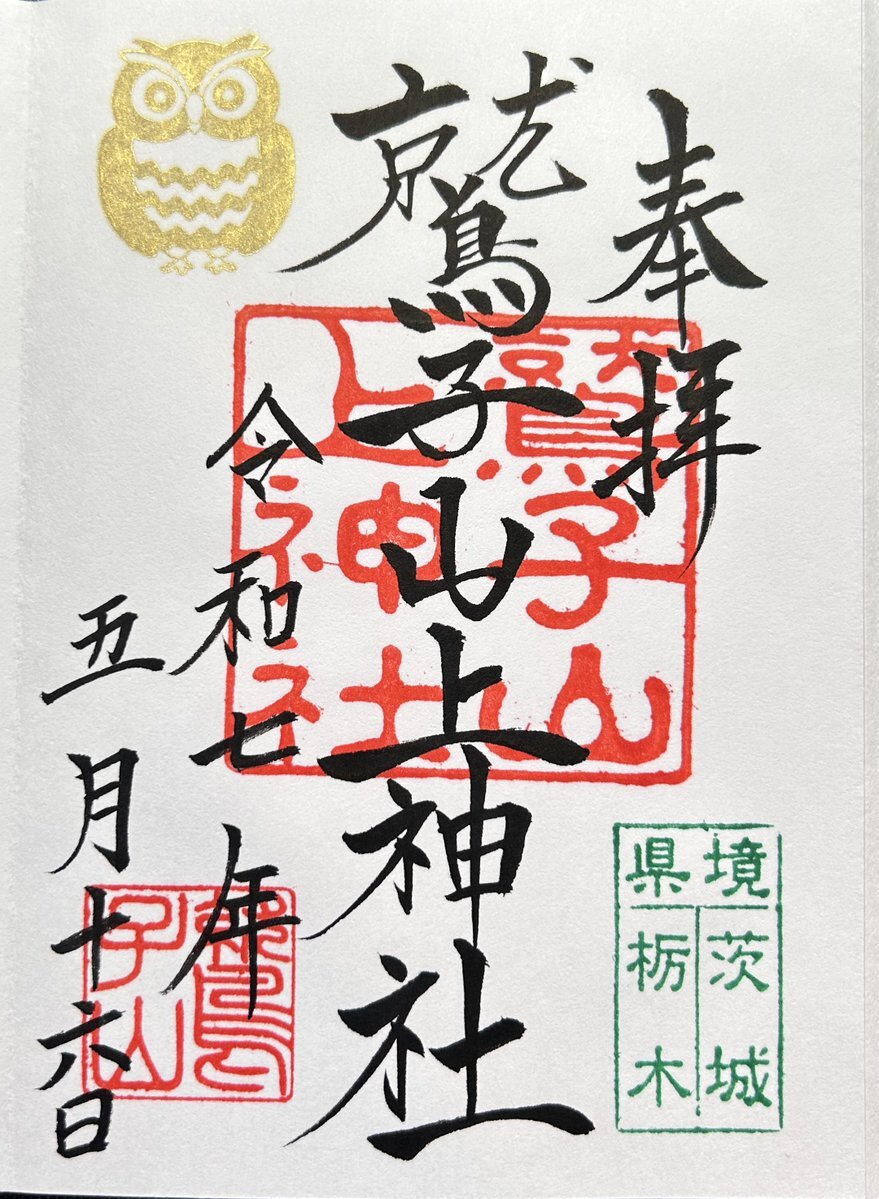 奉拝
鷲子山上神社
令和七年
五月十六日
鷲子山
上神社
境
県
茨城
栃木
鷲
子山